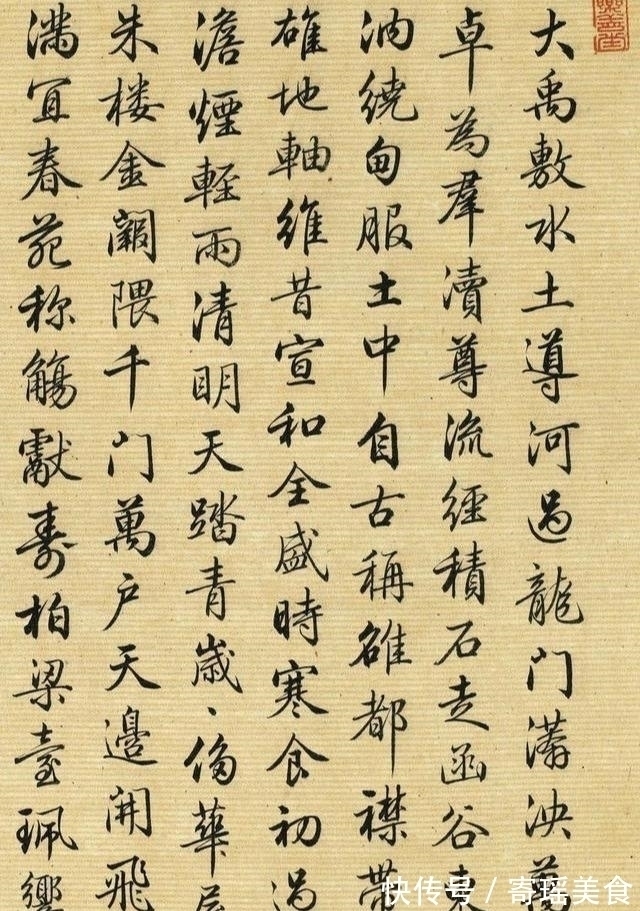 大禹敷水土導河過龍門漭泱
卓為羣瀆尊流經積石走函谷東
汭繞甸服土中自古稱雄都襟帶
雄地軸維昔宣和全盛時寒食初過
澹煙輕雨清明天踏青歲、侈華
朱楼金闕隈千门萬户天邊開飛
滿宜春苑称觴獻壽柏梁臺珮響
快传号 / 寄瑶美食